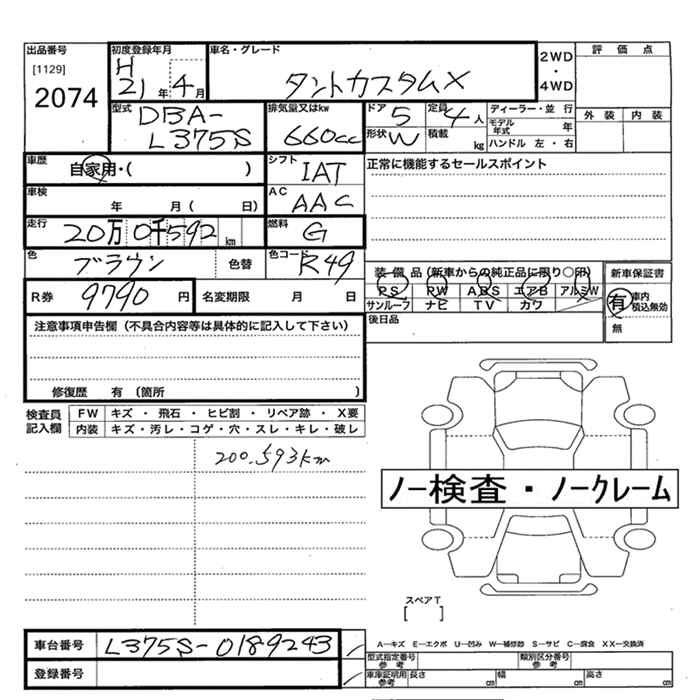 出品番号 初度登録年月 車名・グレード 2WD・4WD 評価点
[1129] H
2074 21年 4月 タントカスタムX
外装 内装
型式 DBA-L375S 排気量又はkw 660cc ドア 5 定員 4人 ディーラー・並行
形状 W 積載 kg モデル年式 年
ハンドル 左・右
車歴 自家用・( ) シフト IAT 正常に機能するセールスポイント
車検 年 月( 日) AC AAC
走行 20万0千592km 燃料 G
色 ブラウン 色替 色コード R49
装備品(新車からの純正品に限り○印) 新車保証書
PS PW ABS エアB アルミW 有 車内積込無効
R券 9790円 名変期限 月 日 サンルーフ ナビ TV カワ 無
後日品
注意事項申告欄(不具合内容等は具体的に記入して下さい)
修復歴 有(箇所 )
検査員記入欄 FW キズ・飛石・ヒビ割・リペア跡・X要
内装 キズ・汚レ・コゲ・穴・スレ・キレ・破レ
200.593km
ノー検査・ノークレーム
スペアT
[ ]
車台番号 L375S-0189243 A-キズ E-エクボ U-凹み W-補修跡 S-サビ C-腐食 XX-交換済
型式指定番号参考 類別区分番号参考
登録番号 車庫証明用参考 長さ cm 幅 cm 高さ cm